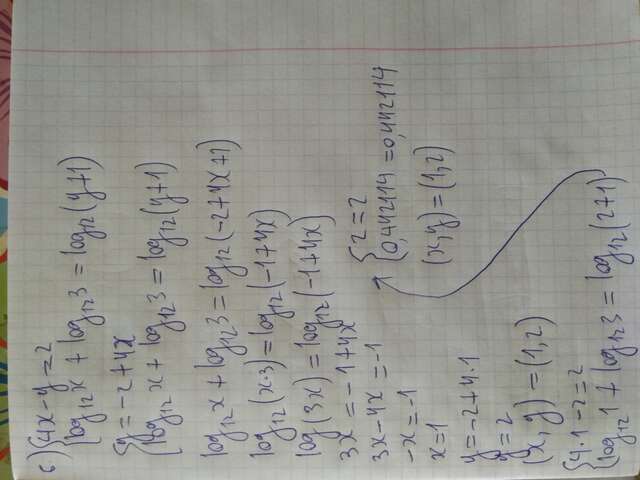 6) { 4x - y = 2
{ log₁₂x + log₁₂3 = log₁₂(y+1)
{ y = -2+4x
{ log₁₂x + log₁₂3 = log₁₂(y+1)
log₁₂x + log₁₂3 = log₁₂(-2+4x+1)
log₁₂(x·3) = log₁₂(-1+4x)
log(3x) = log₁₂(-1+4x)
3x = -1+4x
3x-4x = -1
-x = -1
x = 1
y = -2+4·1
y = 2
(x, y) = (1, 2)
{ 4·1-2=2
{ log₁₂1 + log₁₂3 = log₁₂(2+1)
{ 2 = 2
{ 0,442114 = 0,442114
(x, y) = (1, 2)